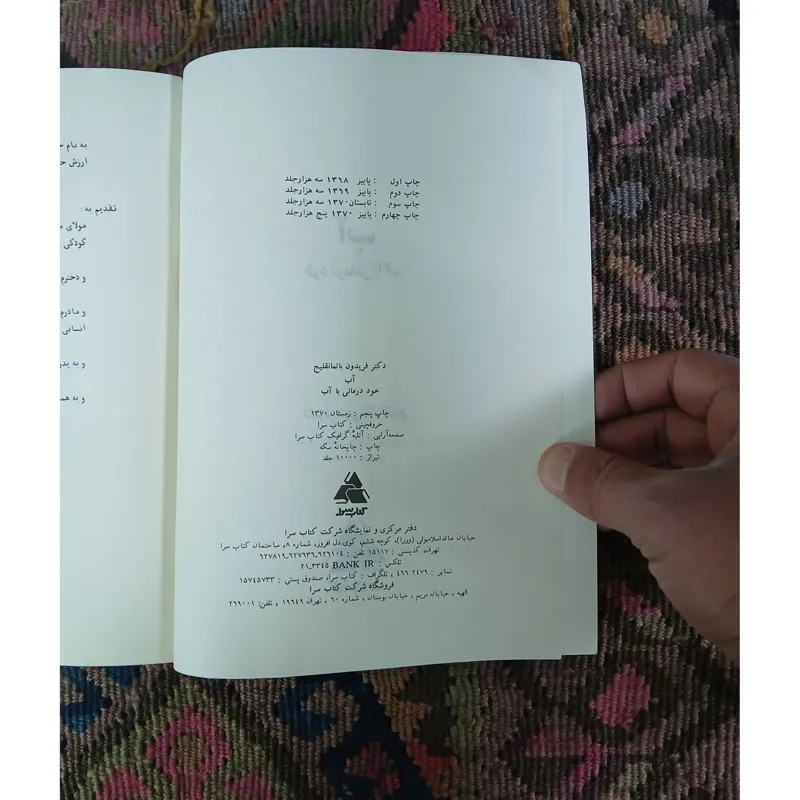 چاپ اول : پاییز ۱۳۶۸ سه هزارجلد
چاپ دوم : پاییز ۱۳۶۹ سه هزارجلد
چاپ سوم : تابستان ۱۳۷۰ سه هزارجلد
چاپ چهارم : پاییز ۱۳۷۰ پنج هزارجلد
دکتر فریدون باتمانقلیج
آب
خود درمانی با آب
چاپ پنجم : زمستان ۱۳۷۰
حروفچینی : کتاب سرا
صفحه‌آرایی : آتلیهٔ گرافیک کتاب سرا
چاپ : چاپخانهٔ سکه
تیراژ : ۱۰۰۰۰ جلد
کتاب سرا
دفتر مرکزی و نمایشگاه شرکت کتاب سرا
خیابان خالداسلامبولی (وزرا)، کوچه ششم، کوی دل افروز، شماره ۸، ساختمان کتاب سرا
تهران، کدپستی : ۱۵۱۱۷ تلفن : ۶۲۶۱۰۴_۶۲۷۶۳۶_۶۲۷۸۱۹
تلکس : ۲۱_۳۳۴۵ BANK IR
نمابر : ۲۴۷۹ ۴۶۶ ، تلگراف : کتاب سرا، صندوق پستی : ۱۵۷۴۵۷۳۳
فروشگاه شرکت کتاب سرا
الهیه ، خیابان مریم ، خیابان بوستان ، شماره ۶۰ ، تهران ۱۹۶۴۹ ، تلفن: ۲۶۹۰۰۱
به نام
ارزش
تقدیم به :
مولای
کودکی
و دخترم
و مادرم
انسانی
و به
و به